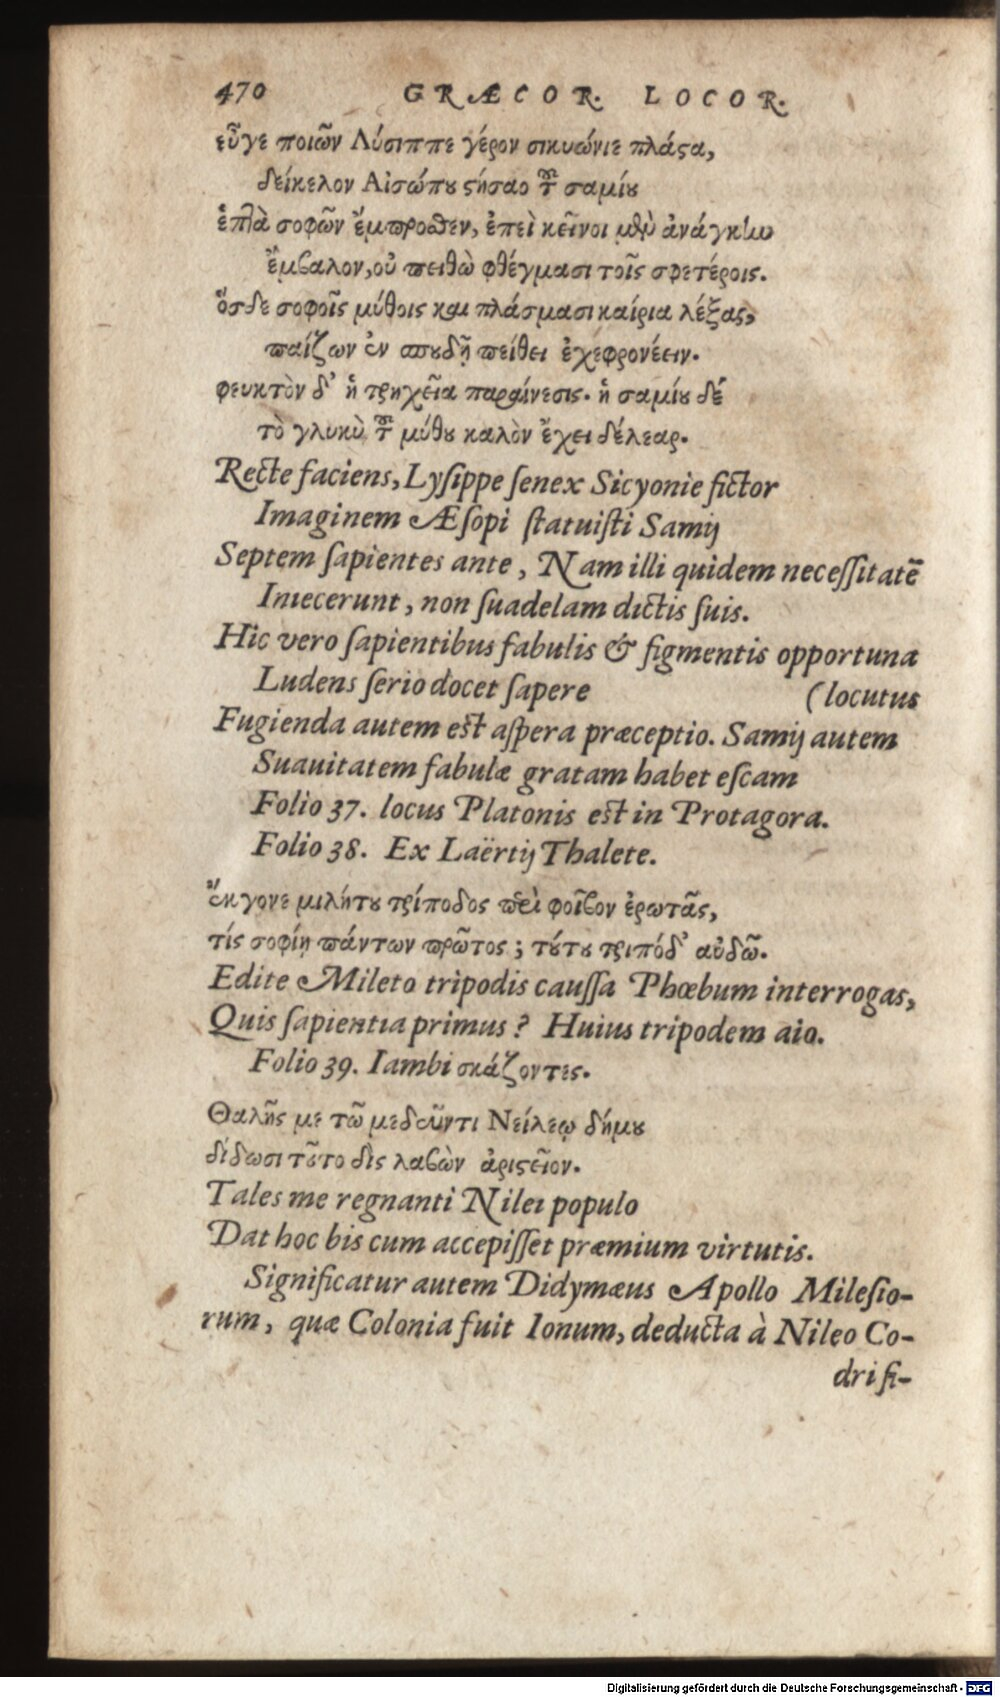 470 GRÆCOR. LOCOR.
εὖγε ποιῶν Λύσιππε γέρον σικυώνιε πλάϛα,
δείκελον Αἰσώπȣ ϛήσαο τȣ͂ σαμίȣ
ἑπτὰ σοφῶν ἔμπροσθεν, ἐπεὶ κεῖνοι μὲν ἀνάγκην
ἔμβαλον, οὐ πειθὼ φθέγμασι τοῖς σφετέροις.
ὅσδε σοφοῖς μύθοις καὶ πλάσμασι καίρια λέξας,
παίζων ἐν σπȣδῇ πείθει ἐχεφρονέειν.
φευκτὸν δ’ ἡ τρηχεῖα παραίνεσις. ἡ σαμίȣ δέ
τὸ γλυκὺ τȣ͂ μύθȣ καλὸν ἔχει δέλεαρ.
Recte faciens, Lyſippe ſenex Sicyonie fictor
Imaginem Æſopi ſtatuiſti Samij
Septem ſapientes ante, Nam illi quidem neceſſitatē
Iniecerunt, non ſuadelam dictis ſuis.
Hic vero ſapientibus fabulis & figmentis opportuna
Ludens ſerio docet ſapere (locutus
Fugienda autem eſt aſpera præceptio. Samij autem
Suauitatem fabulæ gratam habet eſcam
Folio 37. locus Platonis eſt in Protagora.
Folio 38. Ex Laërtij Thalete.
ἔκγονε μιλήτȣ τρίποδος περὶ φοῖβον ἐρωτᾶς,
τίς σοφίῃ πάντων πρῶτος; τȣ́τȣ τριπόδ’ αὐδῶ.
Edite Mileto tripodis cauſſa Phœbum interrogas,
Quis ſapientia primus? Huius tripodem aio.
Folio 39. Iambi σκάζοντες.
Θαλῆς με τῶ μεδεῦντι Νείλεῳ δήμȣ
δίδωσι τȣ͂το δὶς λαβὼν ἀριϛεῖον.
Tales me regnanti Nilei populo
Dat hoc bis cum accepiſſet præmium virtutis.
Significatur autem Didymæus Apollo Mileſio-
rum, quæ Colonia fuit Ionum, deducta à Nileo Co-
dri fi-
Digitalisierung gefördert durch die Deutsche Forschungsgemeinschaft - DFG